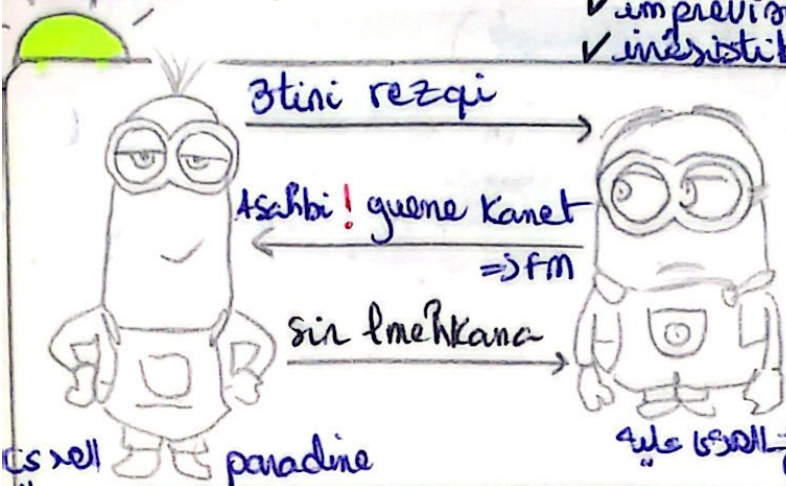 ✓ imprévis
✓ irrésistib
3tini rezqi
Asahbi ! guerre kanet
=> FM
Sir lmehkama
المدعي
paradine
المدعى عليه